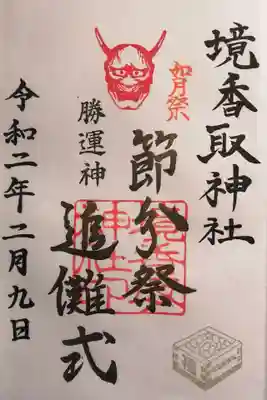 境香取神社
如月祭
節分祭
追儺式
勝運神
令和二年二月九日